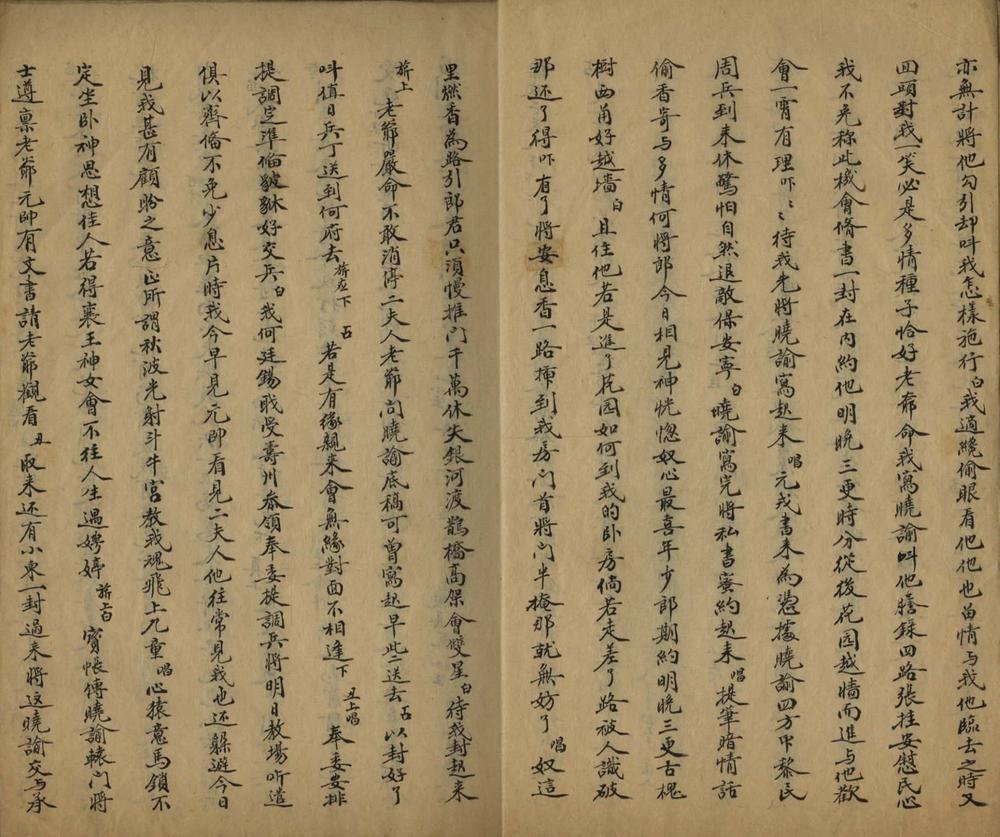 亦無計將他勾引却叫我怎樣施行白我適纔偷眼看他他也留情与我他臨去之時又
回頭對我一笑必是多情種子恰好老爺命我寫曉諭叫他謄錄四路張挂安慰民心
我不免称此機會脩書一封在内約他明晚三更時分從後花园越墙而進与他歡
會一宵有理吓〻待我先將曉諭寫起来唱元戎書来為慿據曉諭四方甲黎民
周兵到来休驚怕自然退敵保安寧白曉諭寫完將私書蜜約起来唱提筆暗情話
偷香寄与多情何將郎今日相見神恍惚奴心最喜年少郎期約明晚三更古槐
樹西甬好越墻白且住他若是進了花园如何到我的卧房倘若走差了路被人識破
那还了得吓有了將安息香一路挿到我房门首將门半掩那就無妨了唱奴這
里燃香為路引郎君只須慢推门千萬休失銀河渡鵲橋高保會雙星白待我封起来
旂上老爺嚴命不敢消停二夫人老爺问曉諭底稿可曾寫起早些送去占以封好了
呌值日兵丁送到何府去旂应下占若是有缘親来會無緣對面不相逢下丑上唱奉委安排
提調定準俻貔貅好交兵白我何廷錫戝受壽州叅領奉委提調兵將明日教場听遣
俱以齊俻不免少息片時我今早見元帥看見二夫人他往常見我也还躲避今日
見我甚有顧盼之意正所謂秋波光射斗牛宮教我魂飛上九童唱心猿意馬鎖不
定坐卧神思想佳人若得襄王神女會不往人生遇娉婷旂上白寳帳傳曉諭轅门將
士遵禀老爺元帥有文書請老爺觀看丑取来还有小柬一封過来將这曉諭交与承